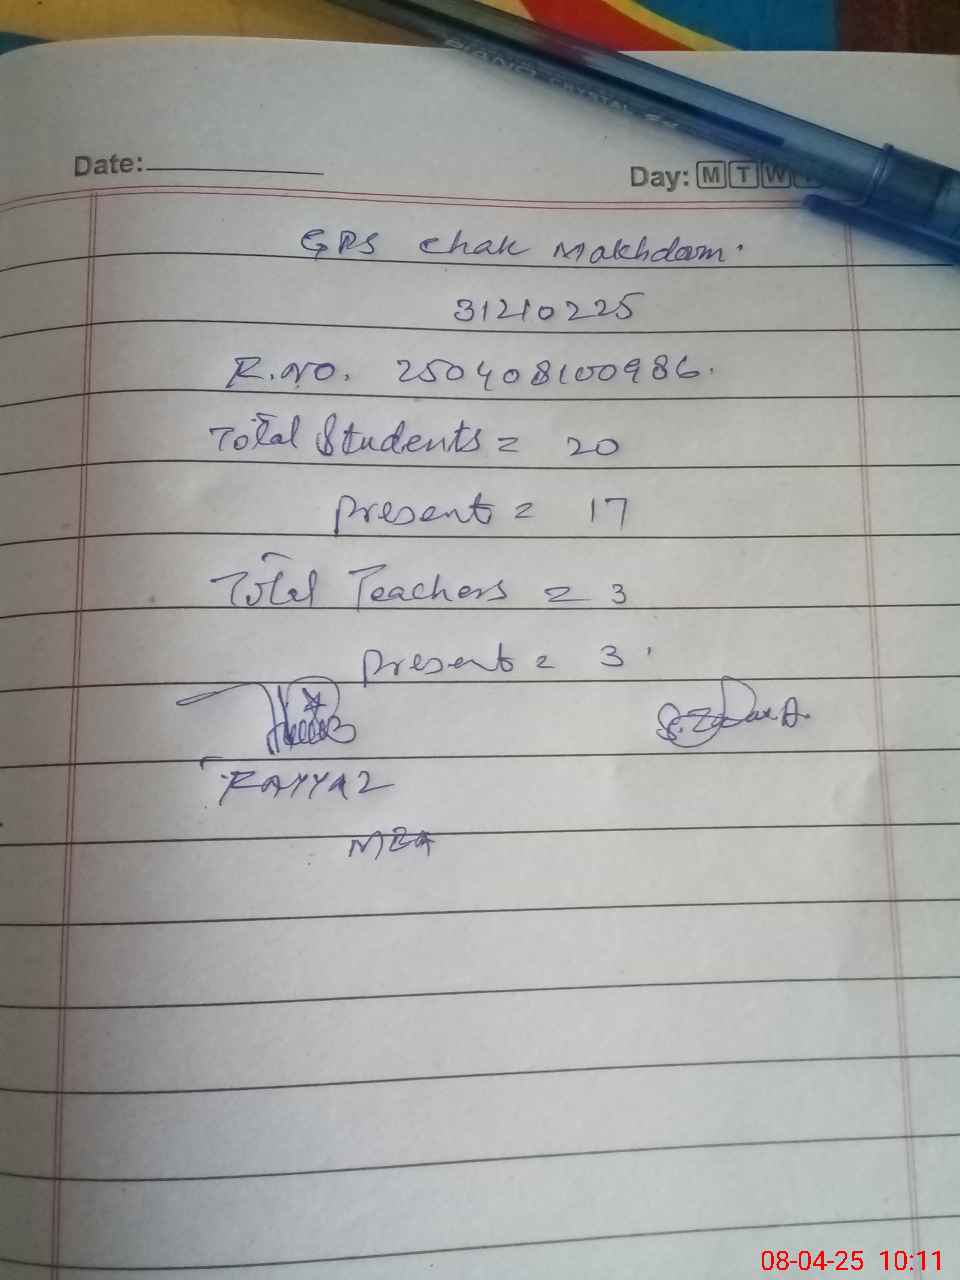 PIANO CRYSTAL
Date:
Day: M T W
GPS Chak Makhdom.
31210225
R.No. 250408100986.
Total Students = 20
Present = 17
Total Teachers = 3
Present = 3
FAYYAZ
MEA
08-04-25 10:11